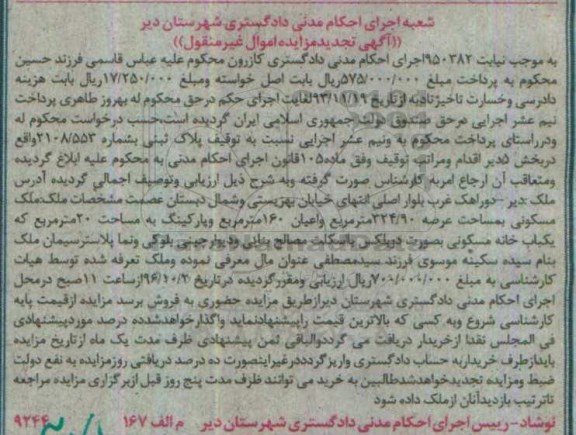 شعبه اجرای احکام مدنی دادگستری شهرستان دیر
((آگهی تجدیدمزایده اموال غیرمنقول))
به موجب نیابت ۹۵۰۳۸۲اجرای احکام مدنی دادگستری کازرون محکوم علیه عباس قاسمی فرزند حسین
محکوم به پرداخت مبلغ ۵۷۵/۰۰۰/۰۰۰ریال بابت اصل خواسته ومبلغ ۱۷/۲۵۰/۰۰۰ریال بابت هزینه
دادرسی وخسارت تاخیرتادیه ازتاریخ ۹۳/۱۱/۱۹لغایت اجرای حکم درحق محکوم له بهروز طاهری پرداخت
نیم عشر اجرایی درحق صندوق دولت جمهوری اسلامی ایران گردیده است،حسب درخواست محکوم له
ودرراستای پرداخت محکوم به ونیم عشر اجرایی نسبت به توقیف پلاک ثبتی بشماره ۲۱۰۸/۵۵۳واقع
دربخش ۵دیر اقدام ومراتب توقیف وفق ماده۱۰۵قانون اجرای احکام مدنی به محکوم علیه ابلاغ گردیده
ومتعاقب آن ارجاع امربه کارشناس صورت گرفته وبه شرح ذیل ارزیابی وتوصیف اجمالی گردیده آدرس
ملک:دیر -دوراهک غرب بلوار اصلی انتهای خیابان بهزیستی وشمال دبستان عصمت مشخصات ملک:ملک
مسکونی بمساحت عرصه ۳۲۴/۹۰مترمربع واعیان ۱۶۰مترمربع وپارکینگ به مساحت ۲۰مترمربع که
یکباب خانه مسکونی بصورت دوبلکس بااسکلت مصالح بنایی ودیوارچینی بلوکی ونما پلاسترسیمان ملک
بنام سیده سکینه موسوی فرزند سیدمصطفی عنوان مال معرفی نموده وملک تعرفه شده توسط هیات
کارشناسی به مبلغ ۷۰۰/۰۰۰/۰۰۰ریال ارزیابی ومقررگردیده درتاریخ ۹۶/۱۰/۲ازساعت ۱۱صبح درمحل
اجرای احکام مدنی دادگستری شهرستان دیرازطریق مزایده حضوری به فروش برسد مزایده ازقیمت پایه
کارشناسی شروع وبه کسی که بالاترین قیمت راپیشنهادنماید واگذارخواهدشدده درصد موردپیشنهادی
فی المجلس نقدا ازخریدار دریافت می گرددوالباقی ثمن پیشنهادی ظرف مدت یک ماه ازتاریخ مزایده
بایدازطرف خریداربه حساب دادگستری واریزگردددرغیراینصورت ده درصد دریافتی روزمزایده به نفع دولت
ضبط ومزایده تجدیدخواهدشدطالبین به خرید می توانند ظرف مدت پنج روز قبل ازبرگزاری مزایده مراجعه
تاترتیب بازدیدآنان ازملک داده شود
نوشاد-رییس اجرای احکام مدنی دادگستری شهرستان دیر م الف ۱۶۷ ۹۲۴۴